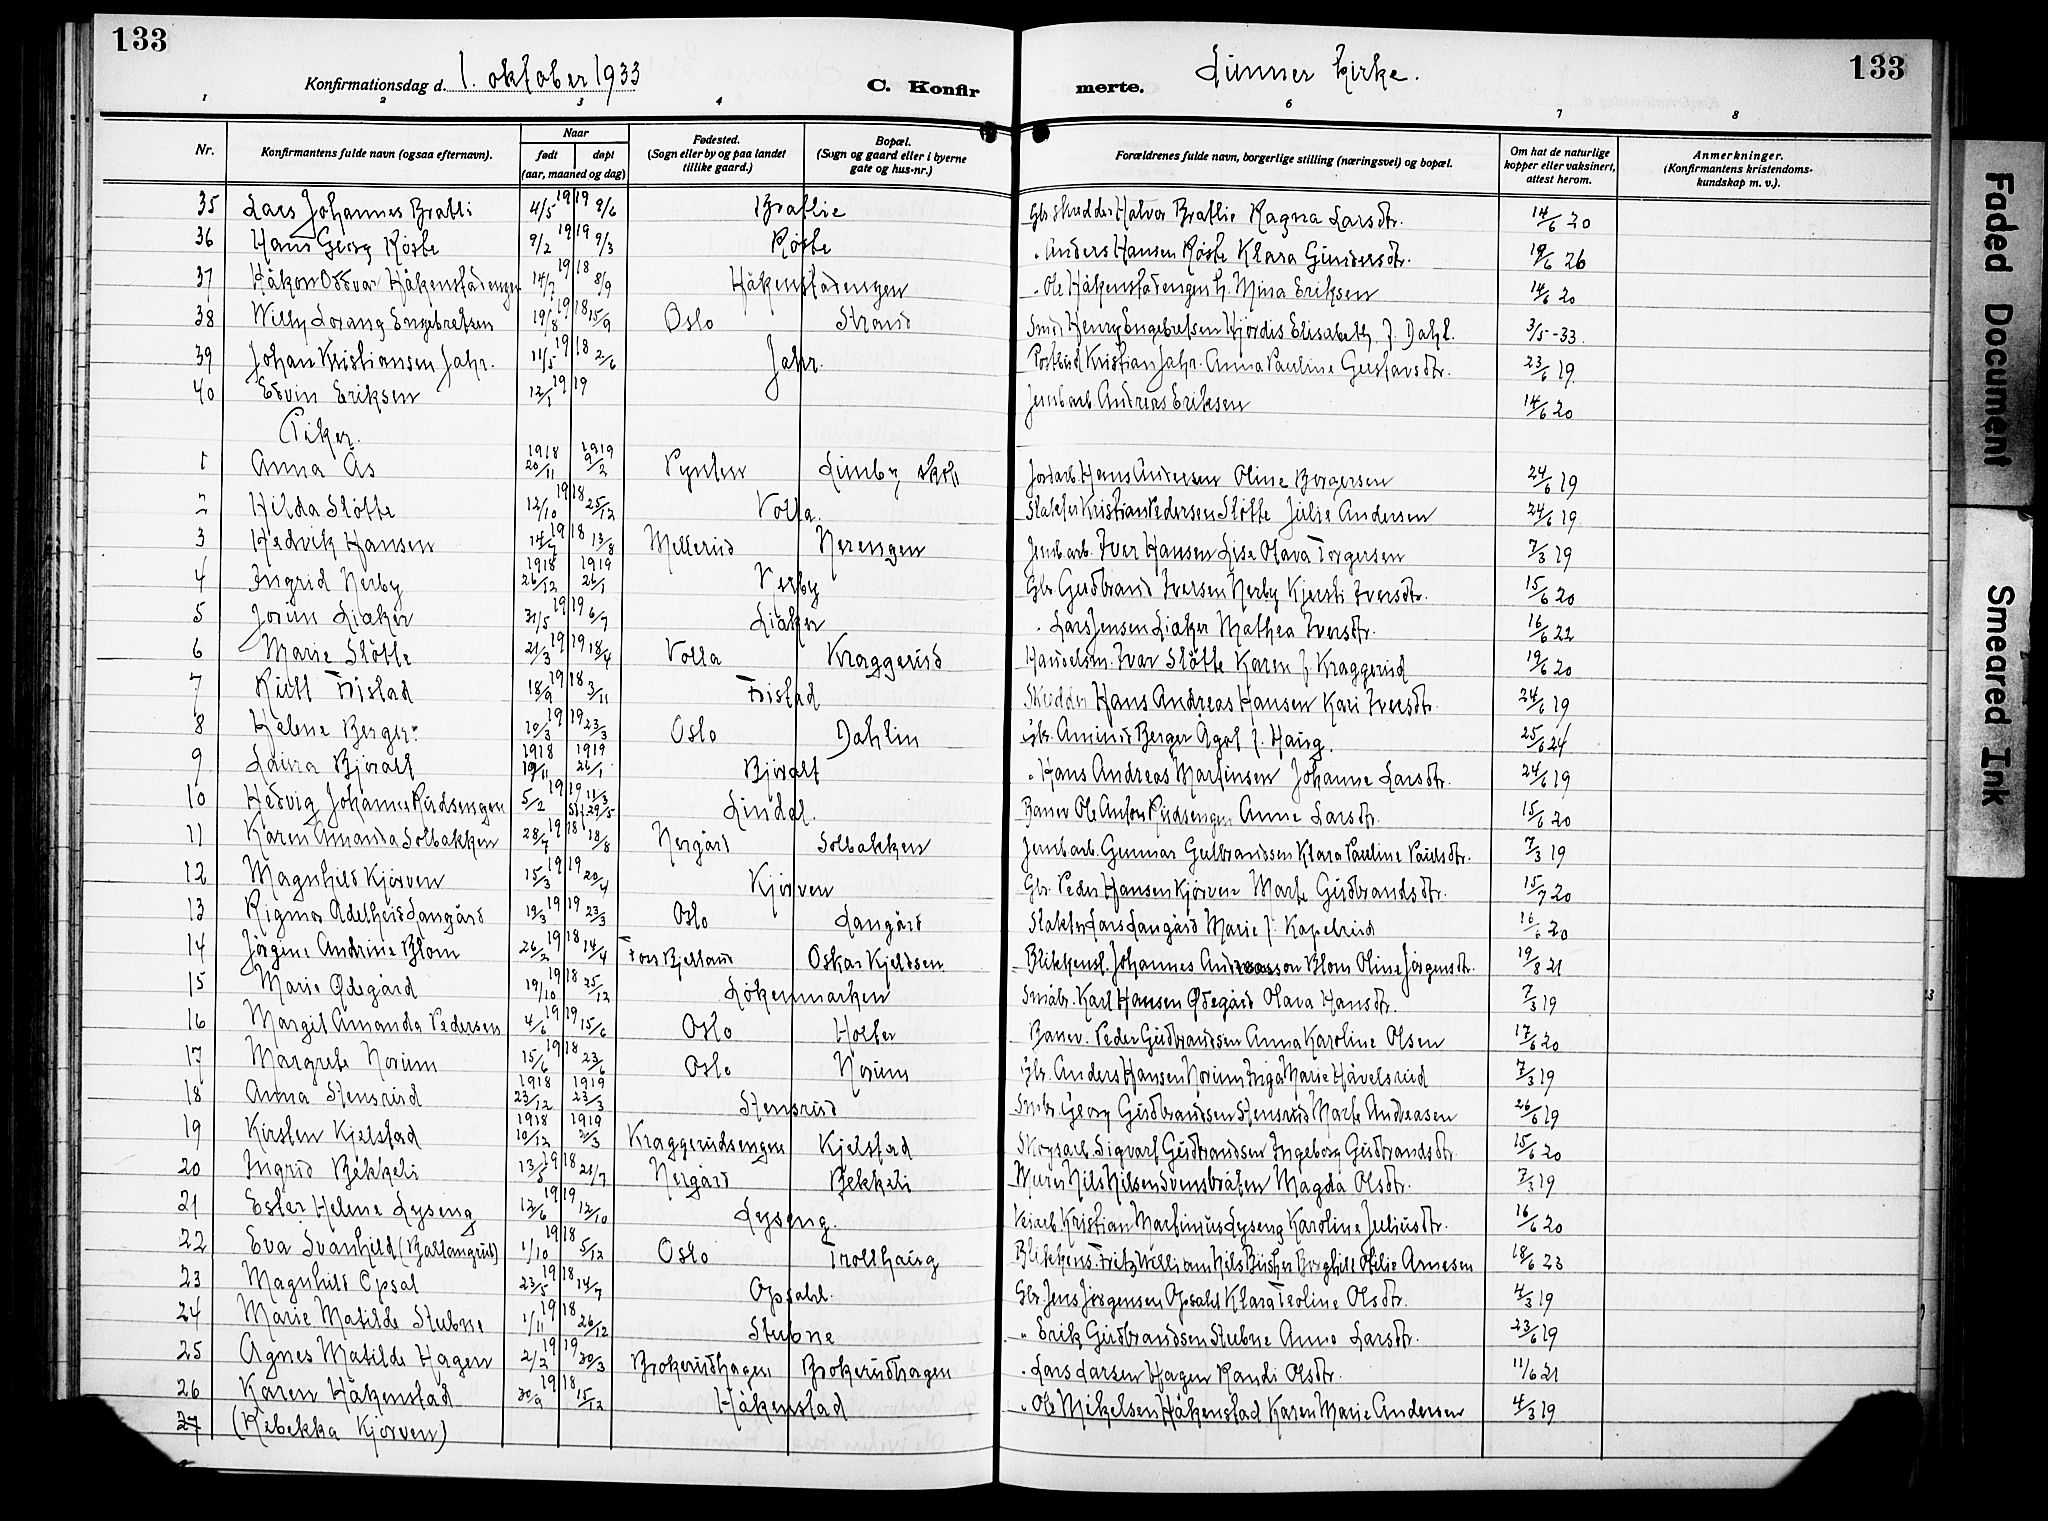 133
Konfirmationsdag d. 1. oktober 1933
C. Konfir
merte.
Lunner kirke.
133
1 2 3 4 6 7 8
Nr.
Konfirmantens fulde navn (ogsaa efternavn).
Naar
født døpt
(aar, maaned og dag)
Fødested.
(Sogn eller by og paa landet
tillike gaard.)
Bopæl.
(Sogn og gaard eller i byerne
gate og hus-nr.)
Forældrenes fulde navn, borgerlige stilling (næringsvei) og bopæl.
Om hat de naturlige
kopper eller vaksinert,
attest herom.
Anmerkninger.
(Konfirmantens kristendoms-
kundskap m. v.).
35 Lars Johannes Bratli 4/5 19 19 9/6 Bratlie Gbr. skredder Halvor Bratlie Ragna Larsdtr. 14/6 20
36 Hans Georg Røste 9/2 19 19 9/3 Røste " Anders Hansen Røste Klara Gundersdtr. 19/6 26
37 Håkon Oddvar Håkenstadengen 14/7 19 18 8/9 Håkenstadengen " Ole Håkenstadengen h. Mina Eriksen 14/6 20
38 Willy Lorang Engebretsen 19/8 19 18 15/9 Oslo Strand Smed Henry Engebretsen Hjørdis Elisabeth f. Dahl. 3/5-33.
39 Johan Kristiansen Jahr. 11/5 19 18 2/6 Jahr. Postbud Kristian Jahr. Anna Pauline Gustavsdtr. 23/6 19.
40 Edvin Eriksen 12/1 19 19 Jernb arb. Andreas Eriksen 14/6 20
Piker.
1 Anna Ås 1918 20/11 1919 9/2 Lunby skole Jordarb. Hans Andersen Oline Borgersen 24/6 19
2 Hilda Sløtte 12/10 19 18 25/12 Volla. Slakter Kristian Pedersen Sløtte Julie Andersen 24/6 19.
3 Hedvik Hansen 14/7 19 18 13/8 Mellerud Nerengen Jernb arb. Iver Hansen Lise Olava Torgersen 7/3 19
4 Ingrid Nerby 1918 26/12 1919 26/1 Nerby Gbr. Gudbrand Iversen Nerby Kjersti Iversdtr. 15/6 20
5 Jorun Liåker 31/5 19 19 6/7 Liåker " Lars Jensen Liåker Mathea Iversdtr. 16/6 22
6 Marie Sløtte 21/3 19 19 18/4 Volla Kraggerud Handelsm. Ivar Sløtte Karen f. Kraggerud 19/6 20
7 Rutt Fristad 18/9 19 18 3/11 Fristad Skredder Hans Andreas Hansen Kari Iversdtr. 24/6 19
8 Helene Berger 10/3 19 19 23/3 Oslo Dahlin Gbr. Amund Berger Agot f. Haug. 25/6 24
9 Laura Bjøralt 1918 19/11 1919 26/1 Bjøralt " Hans Andreas Martinsen Johanne Larsdtr. 24/6 19
10 Hedvig Johanne Rudsengen 5/2 19 19 11/3 29/5 Lindal. Banev. Ole Anton Rudsengen Anne Larsdtr. 15/6 20
11 Karen Amanda Solbakken 28/7 19 18 18/8 Nergård Solbakken Jernb arb. Gunnar Gulbrandsen Klara Pauline Paulsdtr. 7/3 19
12 Magnhild Kjørven 15/3 19 19 20/4 Kjørven Gbr. Peder Hansen Kjørven Marte Gudbrandsdtr. 15/7 20
13 Rigmor Adelheid Langård 19/3 19 19 23/3 Oslo Langård Slakter Lars Langård Marie f. Kapelrud 16/6 20
14 Jørgine Andrine Blom 26/2 19 18 14/4 Oskar Kjeldsen Blikkensl. Johannes Andreasson Blom Oline Jørgensdtr. 19/8 21
15 Marie Ødegård 19/10 19 18 25/12 Løkenmarken Småbr. Karl Hansen Ødegård Olava Hansdtr. 7/3 19
16 Margit Amanda Pedersen 4/6 19 19 15/6 Oslo Holter Banev. Peder Gudbrandsen Anna Karoline Olsen 17/6 20
17 Margrete Norum 15/6 19 18 23/6 Oslo Norum Gbr. Anders Hansen Norum Inga Marie Håvelsrud 7/3 19
18 Anna Stensrud 1918 23/12 1919 23/3 Stensrud Småbr. Georg Gudbrandsen Stensrud Marte Andreasen 26/6 19
19 Kirsten Kjelstad 1918 10/12 1919 2/3 Kraggerudsengen Kjelstad Skogsarb. Sigvart Gudbrandsen Ingeborg Gudbrandsdtr. 15/6 20
20 Ingrid Bekkeli 13/5 19 18 21/7 Nergård Bekkeli Murer Nils Nilsen Svensbråten Magda Olsdtr. 7/3 19
21 Ester Helene Lyseng 12/6 19 19 12/10 Lyseng. Veiarb. Kristian Martinius Lyseng Karoline Juliusdtr. 16/6 20
22 Eva Svanhild (Ballangrud) 1/10 19 18 5/12 Oslo Trollhaug Blikkens. Fritz William Nils Büsher Borghild Otilie Arnesen 18/6 23
23 Magnhild Opsal 23/5 19 18 14/7 Opsahl. Gbr. Jens Jørgensen Opsahl Klara Teoline Olsdtr. 4/3 19
24 Marie Matilde Stubne 1/11 19 18 26/12 Stubne " Erik Gudbrandsen Stubne Anne Larsdtr. 23/6 19
25 Agnes Matilde Hagen 2/2 19 19 30/3 Brokerudhagen Brokerudhagen " Lars Larsen Hagen Randi Olsdtr. 11/6 21
26 Karen Håkenstad 30/9 19 18 15/12 Håkenstad " Ole Mikelsen Håkenstad Karen Marie Andersen 4/3 19
27 (Rebekka Kjørven)
Faded Document
Smeared Ink